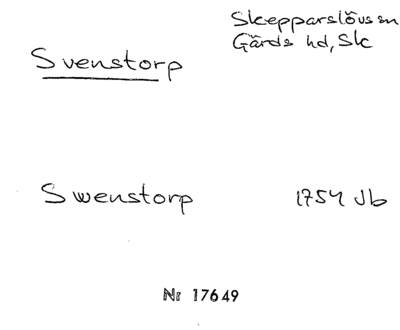 Skepparslövs sn
Gärds hd, Sk
Svenstorp
Swenstorp 1754 Jb
Nr 17649